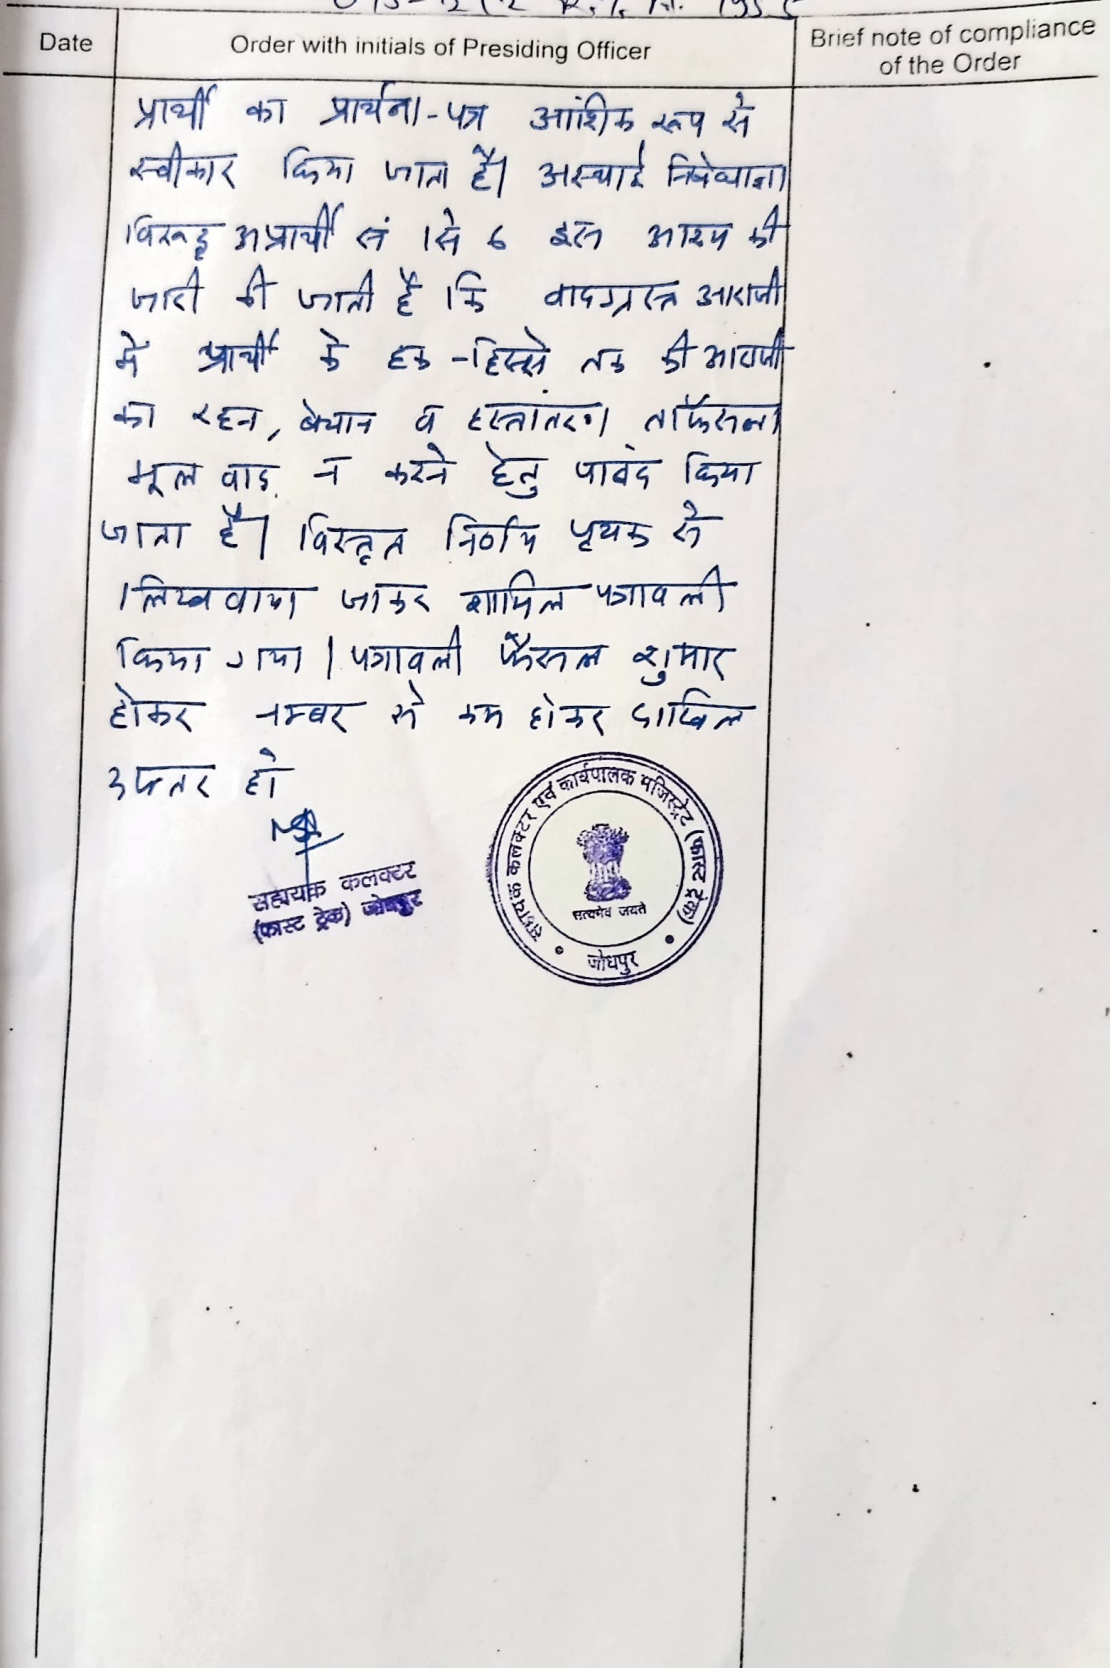 Date
Order with initials of Presiding Officer
Brief note of compliance
of the Order
प्रार्थी का प्रार्थना-पत्र आंशिक रूप से
स्वीकार किया जाता है। अस्थाई निषेधाज्ञा
विरूद्ध अप्रार्थी सं 1 से 6 इस आशय की
जारी की जाती है कि वादग्रस्त आराजी
में प्रार्थी के हक-हिस्से तक की आराजी
का रहन, बेचान व हस्तांतरण ताफैसला
मूल वाद न करने हेतु पाबंद किया
जाता है। विस्तृत निर्णय पृथक से
लिखवाया जाकर शामिल पत्रावली
किया गया। पत्रावली फैसल शुमार
होकर नम्बर से कम होकर दाखिल
दफ्तर हो
सहायक कलक्टर
(फास्ट ट्रेक) जोधपुर
सहायक कलक्टर एवं कार्यपालक मजिस्ट्रेट (फास्ट ट्रेक)
सत्यमेव जयते
जोधपुर